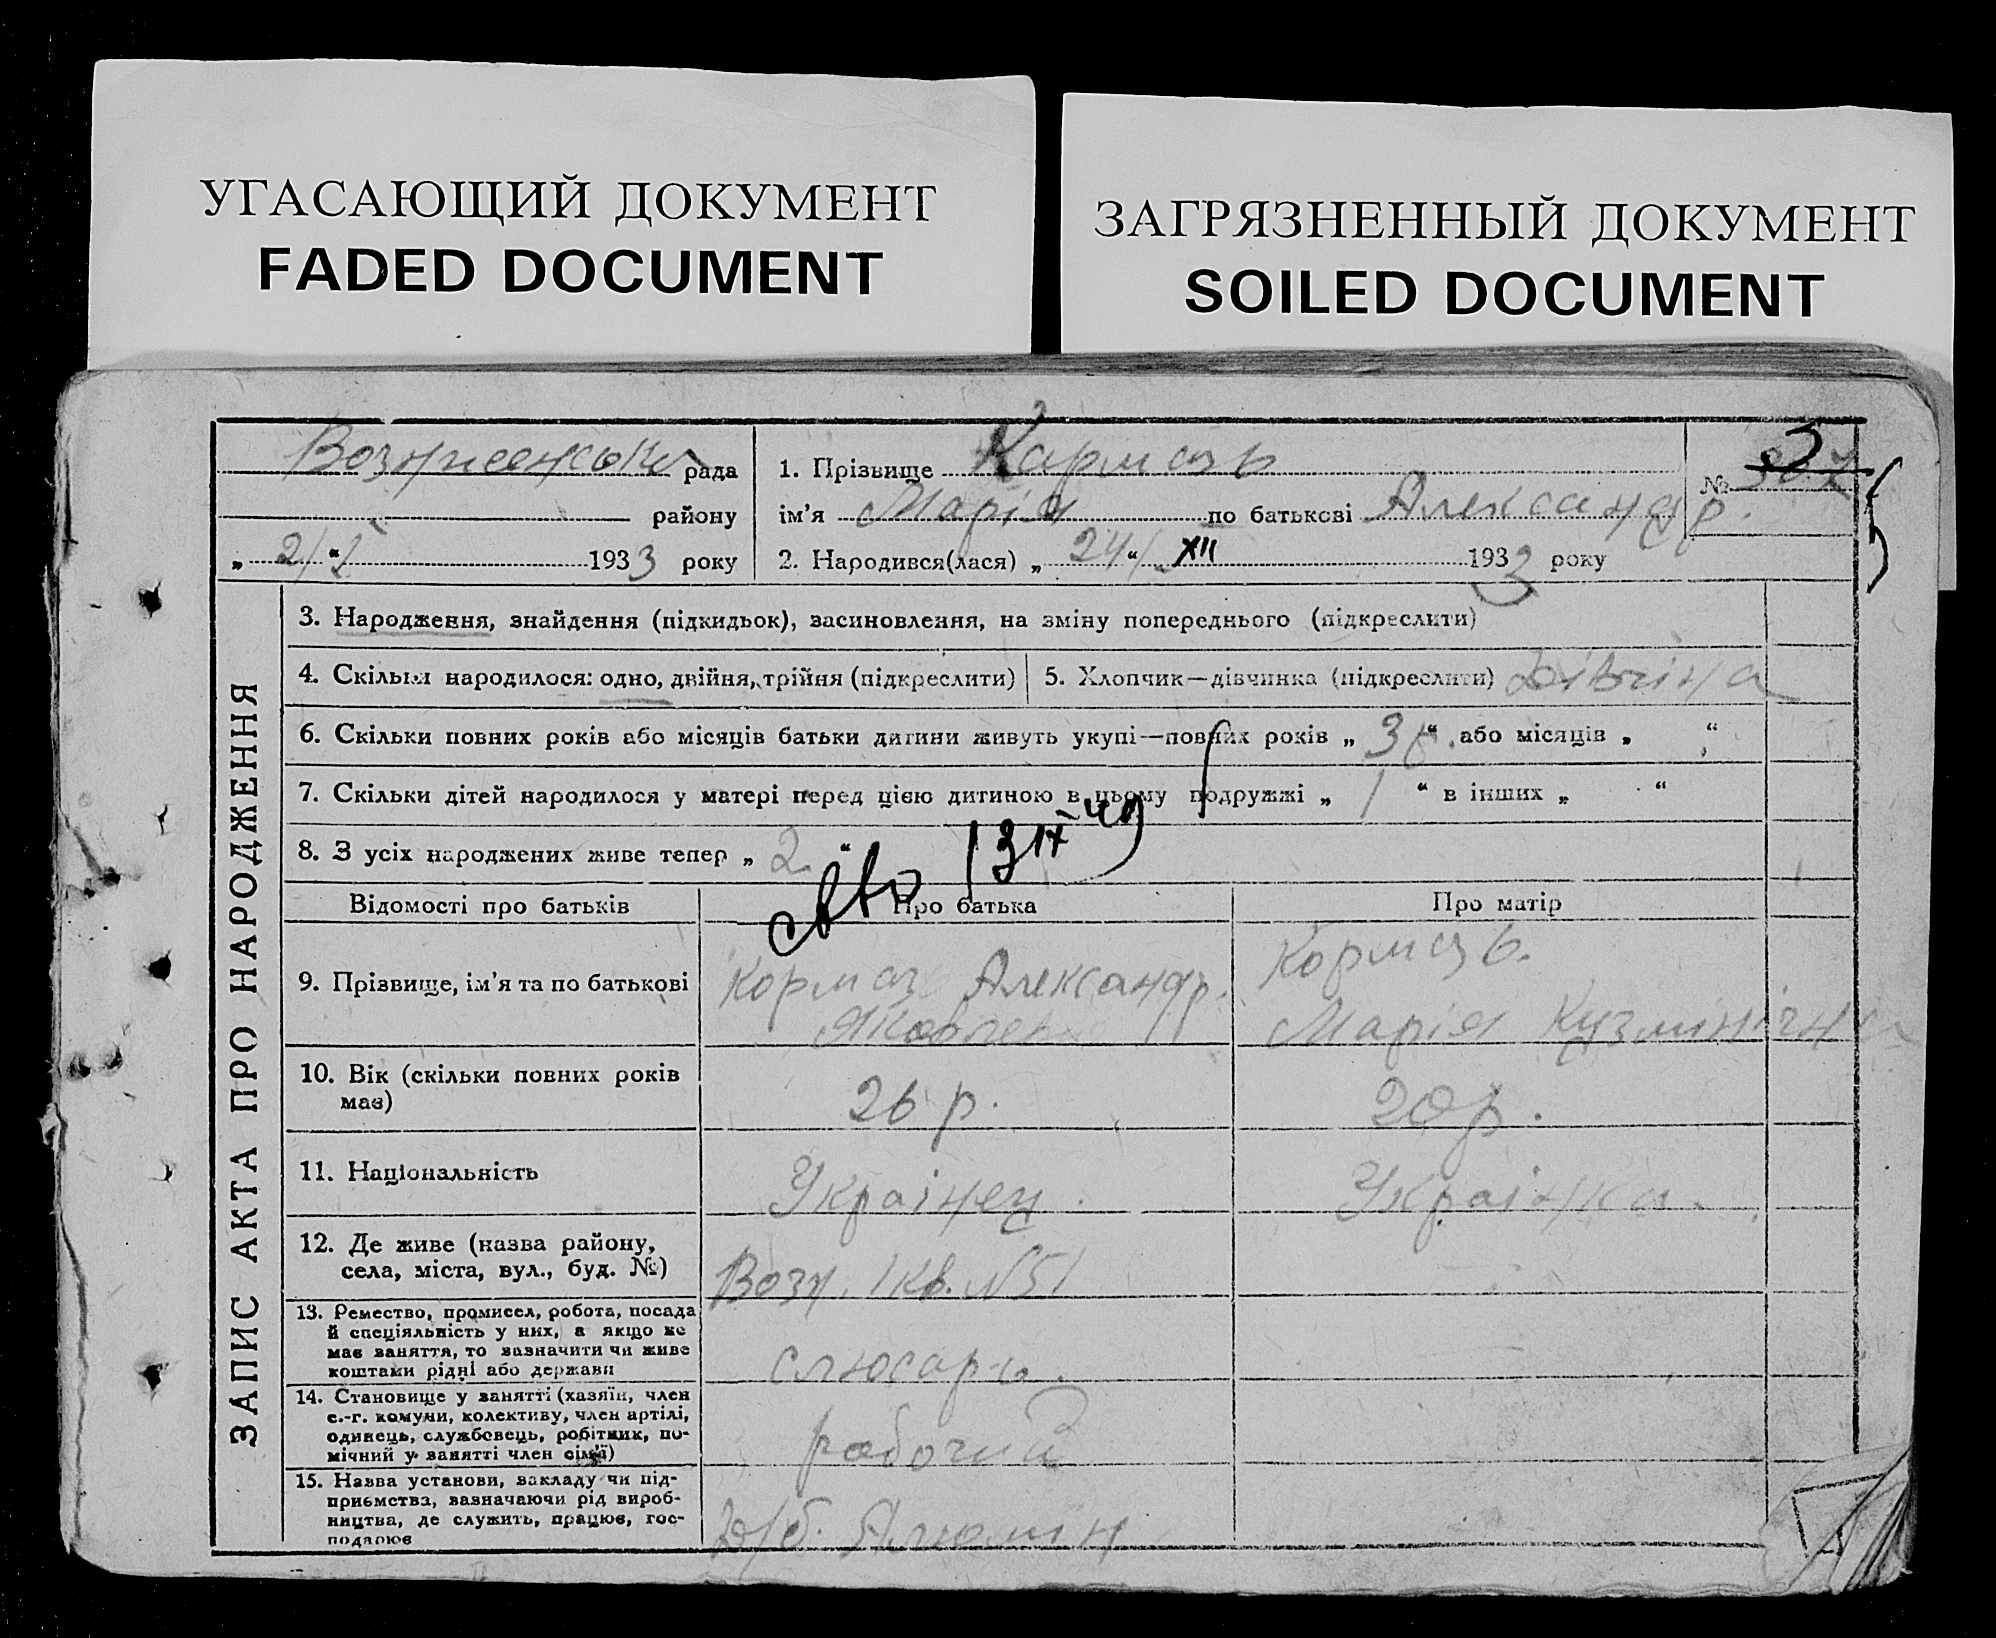 УГАСАЮЩИЙ ДОКУМЕНТ
FADED DOCUMENT
ЗАГРЯЗНЕННЫЙ ДОКУМЕНТ
SOILED DOCUMENT
рада
району
„ 2/I “ 1933 року
1. Прізвище Кармазь
ім’я Марія по батькові Александр.
2. Народився(лася) „ 24 “ XII 1933 року
№
ЗАПИС АКТА ПРО НАРОДЖЕННЯ
3. Народження, знайдення (підкидьок), засиновлення, на зміну попереднього (підкреслити)
4. Скільки народилося: одно, двійня, трійня (підкреслити)
5. Хлопчик—дівчинка (підкреслити) Дівчіна
6. Скільки повних років або місяців батьки дитини живуть укупі—повних років „ 3 р. “ або місяців „ “
7. Скільки дітей народилося у матері перед цією дитиною в цьому подружжі „ 1 “ в інших „ “
8. З усіх народжених живе тепер „ 2 “
Відомості про батьків
Про батька
Про матір
9. Прізвище, ім’я та по батькові
Кормаз Александр.
Кормазь.
Марія Кузмінічна
10. Вік (скільки повних років
має)
26 р.
20 р.
11. Національність
Украінец.
Украінка.
12. Де живе (назва району,
села, міста, вул., буд. №)
Возн. 1 кв. №51
13. Ремество, промисел, робота, посада
й спеціяльність у них, а якщо не
має заняття, то зазначити чи живе
коштами рідні або держави
слюсарь.
14. Становище у занятті (хазяїн, член
с.-г. комуни, колективу, член артілі,
одинець, службовець, робітник, по-
мічний у занятті член сім’ї)
рабочий
15. Назва установи, закладу чи під-
приємства, зазначаючи рід вироб-
ництва, де служить, працює, гос-
подарює
Алюмин